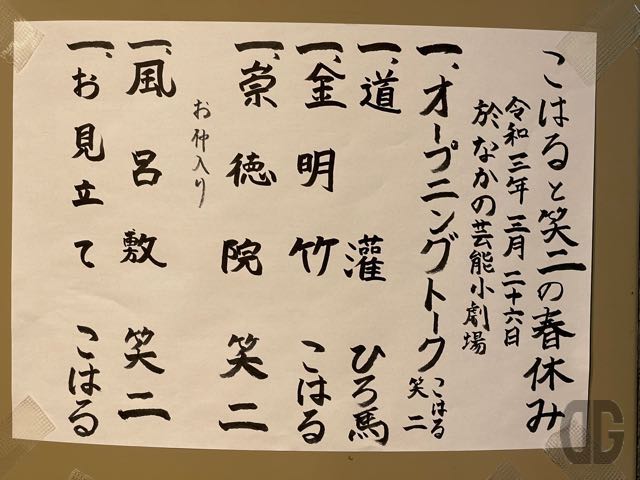 こはると笑二の春休み
令和三年 三月 二十六日
於 なかの芸能小劇場
一、オープニングトーク こはる
笑二
一、道灌 ひろ馬
一、金明竹 こはる
一、崇徳院 笑二
お仲入り
一、風呂敷 笑二
一、お見立て こはる
DG